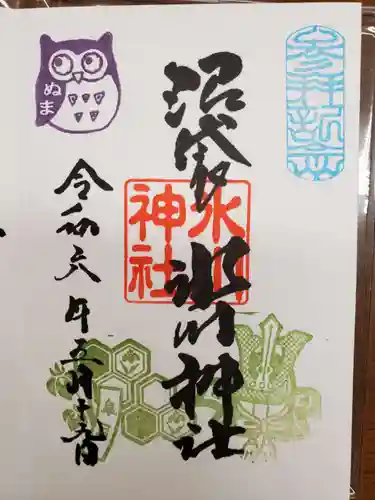 参拝記念
沼袋氷川神社
氷川
神社
ぬま
令和六年五月十九日